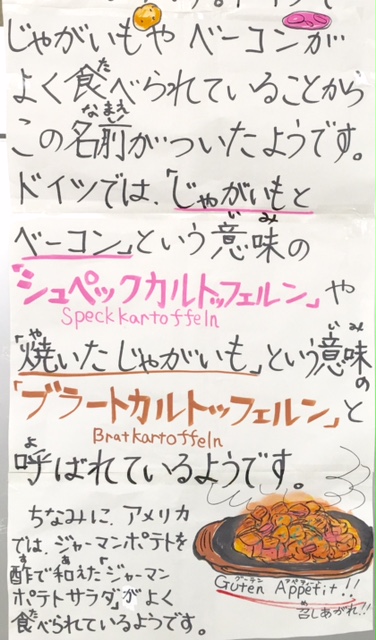 じゃがいもや ベーコンが
よく食べられていることから
この名前がついたようです。
ドイツでは、「じゃがいもと
ベーコン」という意味の
「シュペックカルトッフェルン」や
Speckkartoffeln
「焼いたじゃがいも」という意味の
「ブラートカルトッフェルン」と
Bratkartoffeln
呼ばれているようです。
ちなみに、アメリカ
では、ジャーマンポテトを
酢で和えた「ジャーマン
ポテトサラダ」がよく
食べられているようです。
Guten Appetit!!
召しあがれ!!